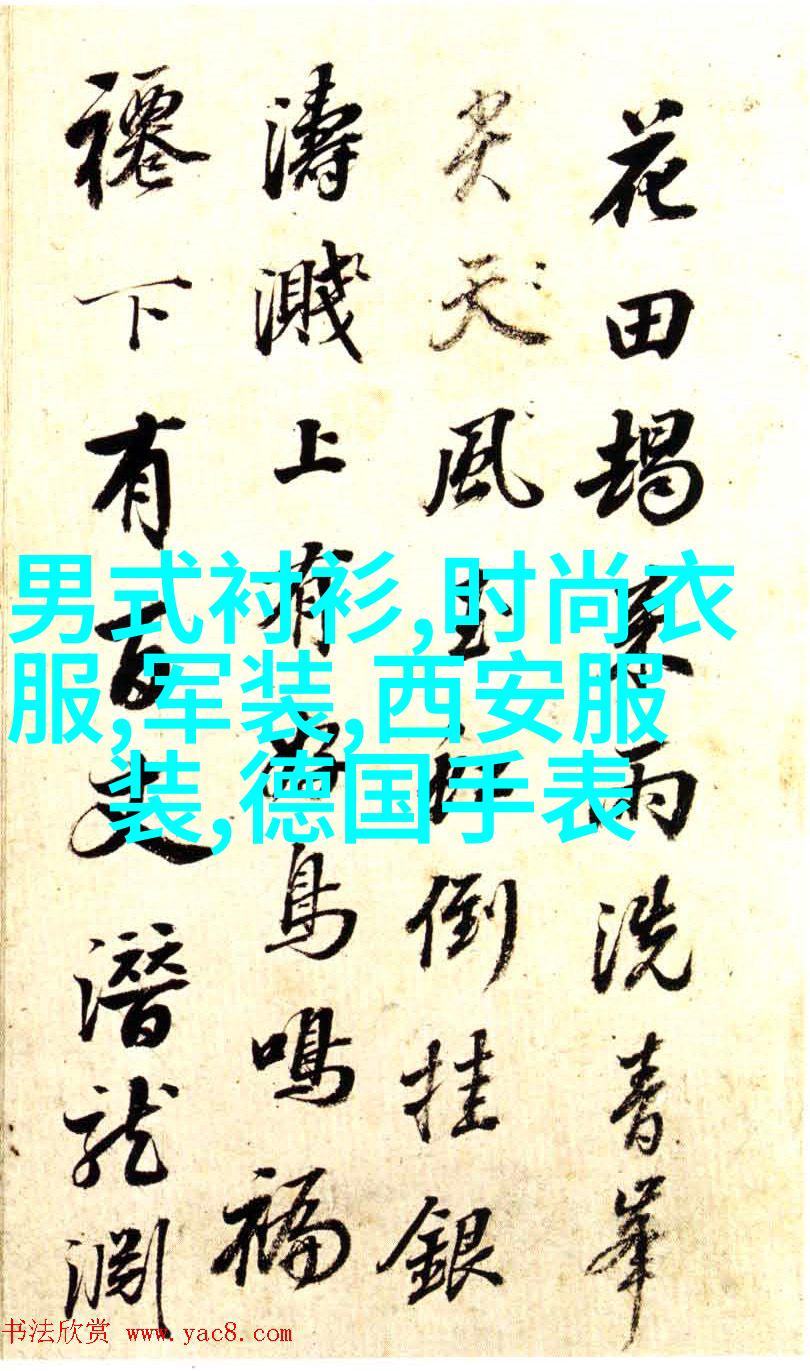 花田雨洗青峯
天風倒挂銀
濤濺上有好鳥鳴福
下有百丈潛龍淵
男式衬衫,时尚衣
服,军装,西安服
装,德国手表
书法欣赏 www.yac8.com